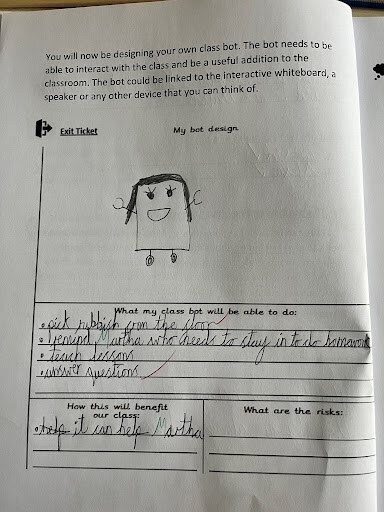 You will now be designing your own class bot. The bot needs to be
able to interact with the class and be a useful addition to the
classroom. The bot could be linked to the interactive whiteboard, a
speaker or any other device that you can think of.
Exit Ticket
My bot design
What my class bot will be able to do:
• pick rubbish from the floor
• remind Martha who needs to stay in to do homework
• teach lessons
• answer questions
How this will benefit
our class:
• help it can help Martha
What are the risks: